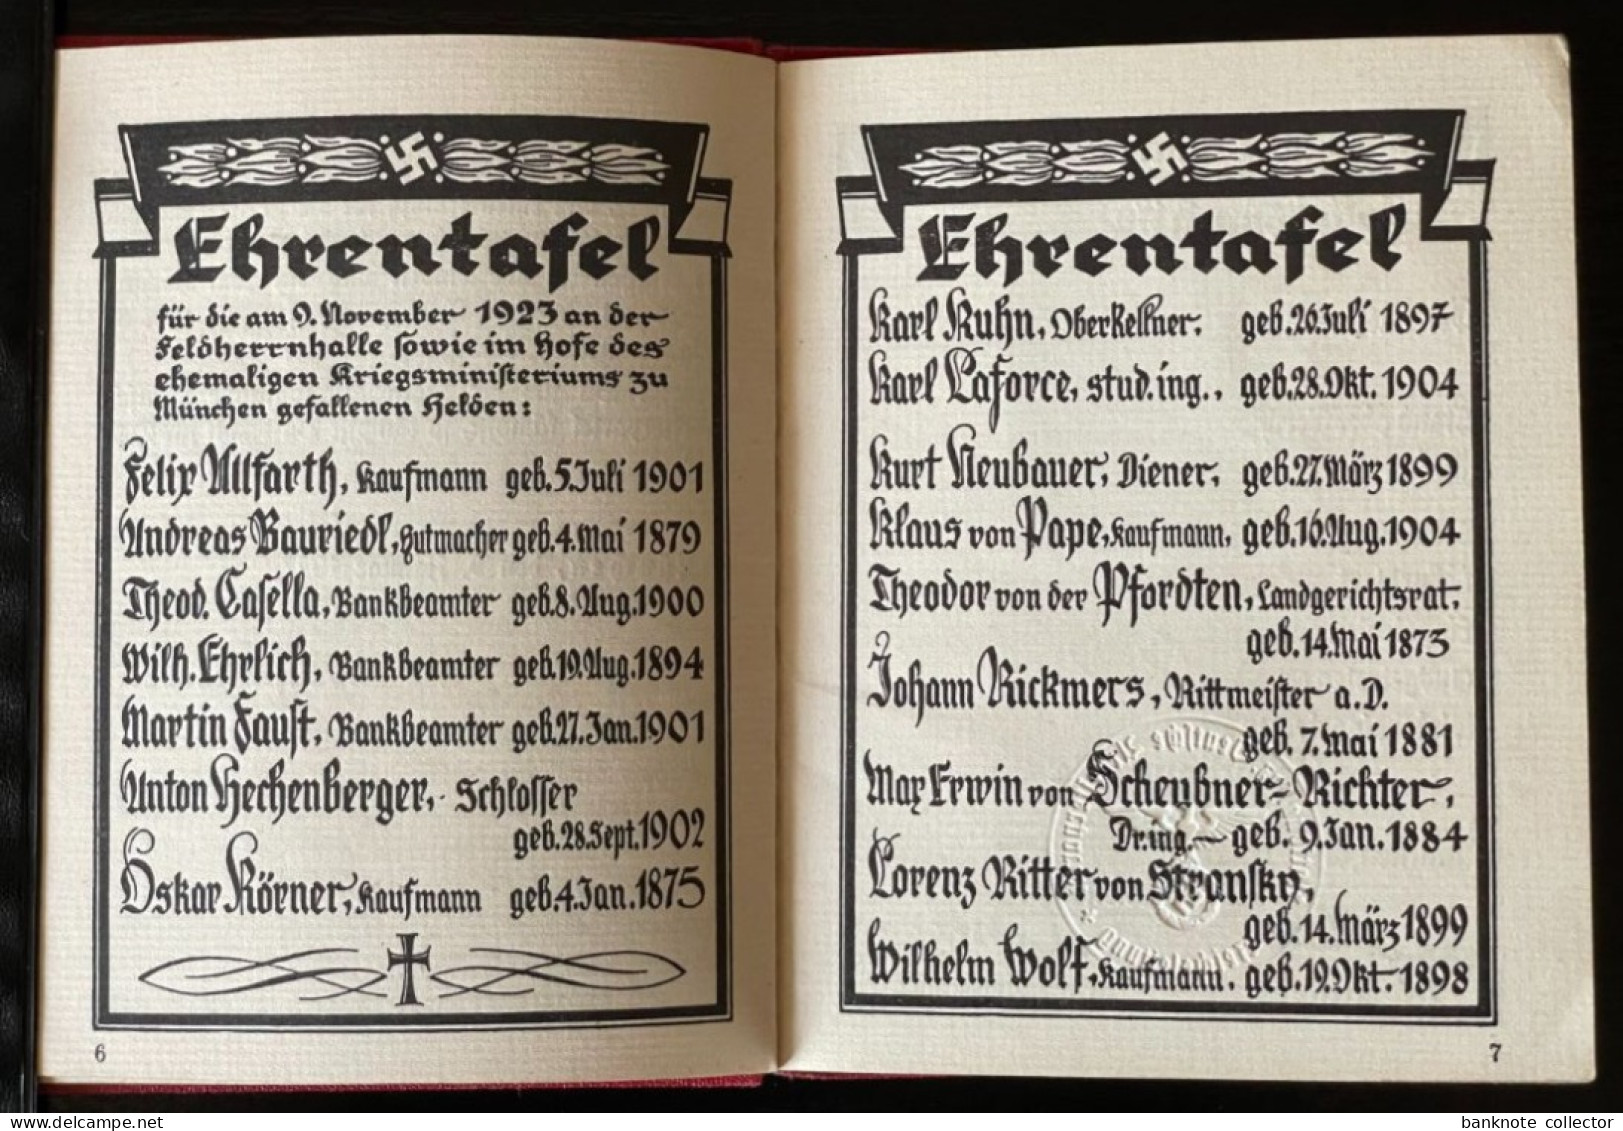 Ehrentafel
für die am 9. November 1923 an der
Feldherrnhalle sowie im Hofe des
ehemaligen Kriegsministeriums zu
München gefallenen Helden:
Felix Allfarth, Kaufmann geb. 5. Juli 1901
Andreas Bauriedl, Hutmacher geb. 4. Mai 1879
Theod. Casella, Bankbeamter geb. 8. Aug. 1900
Wilh. Ehrlich, Bankbeamter geb. 19. Aug. 1894
Martin Faust, Bankbeamter geb. 27. Jan. 1901
Anton Hechenberger, Schlosser
geb. 28. Sept. 1902
Oskar Körner, Kaufmann geb. 4. Jan. 1875
6
Ehrentafel
Karl Kuhn, Oberkellner, geb. 26. Juli 1897
Karl Laforce, stud. ing., geb. 28. Okt. 1904
Kurt Neubauer, Diener, geb. 27. März 1899
Klaus von Pape, Kaufmann, geb. 16. Aug. 1904
Theodor von der Pfordten, Landgerichtsrat,
geb. 14. Mai 1873
Johann Rickmers, Rittmeister a. D.
geb. 7. Mai 1881
Max Erwin von Scheubner-Richter,
Dr. ing. geb. 9. Jan. 1884
Lorenz Ritter von Stransky,
geb. 14. März 1899
Wilhelm Wolf, Kaufmann, geb. 19. Okt. 1898
7
banknote collector